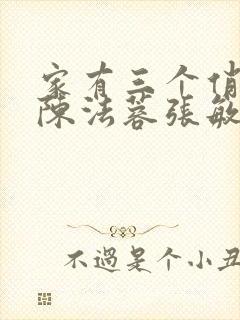 家有三个俏
陈法蓉张敏
不過是个小丑